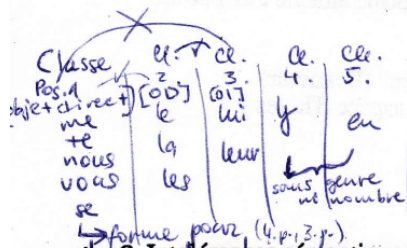 Classe cl. cl. cl. cl.
Pos. 1 2 3 4 5.
objet direct [OD] [OI]
me le lui y en
te la leur
nous les
vous
se
sans genre
ni nombre
forme pour (4.p., 3.p.)